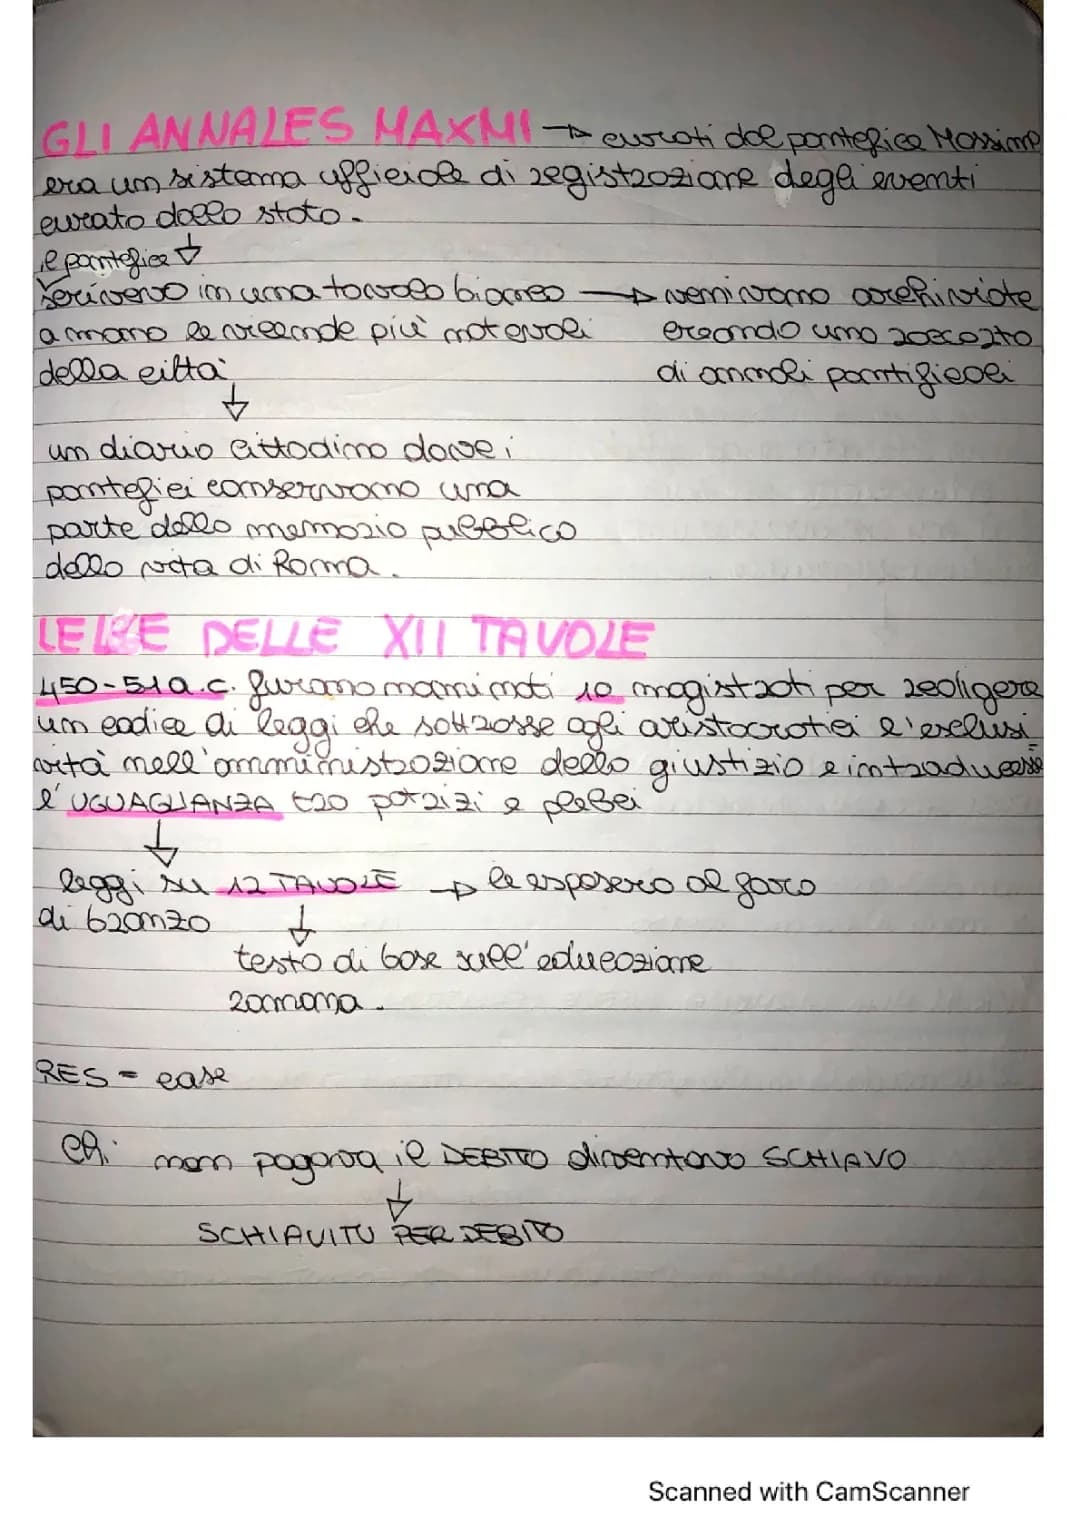 GLI ANNALES MAXMI → curati dal pontefice Massimo
era un sistema ufficiale di registrazione degli eventi
curato dallo stato.
il pontefice ↓
scriveva in una tavola bianca → venivano archiviate
a mano le vicende più notevoli creando una raccolta
della città di annali pontificali
↓
un diario cittadino dove i
pontefici conservavano una
parte della memoria pubblica
della vita di Roma.
DELLE XII TAVOLE
450-51 a.c. furono nominati 10 magistrati per redigere
un codice di leggi che sottrasse agli aristocratici l'esclusi
vità nell'amministrazione della giustizia e introducesse
l'UGUAGLIANZA tra patrizi e plebei
↓
leggi su 12 TAVOLE → le esposero al foro
di bronzo ↓
testo di base sull'educazione
romana.
RES = case
chi non pagava il DEBITO diventava SCHIAVO
↓
SCHIAVITU PER DEBITO
Scanned with CamScanner